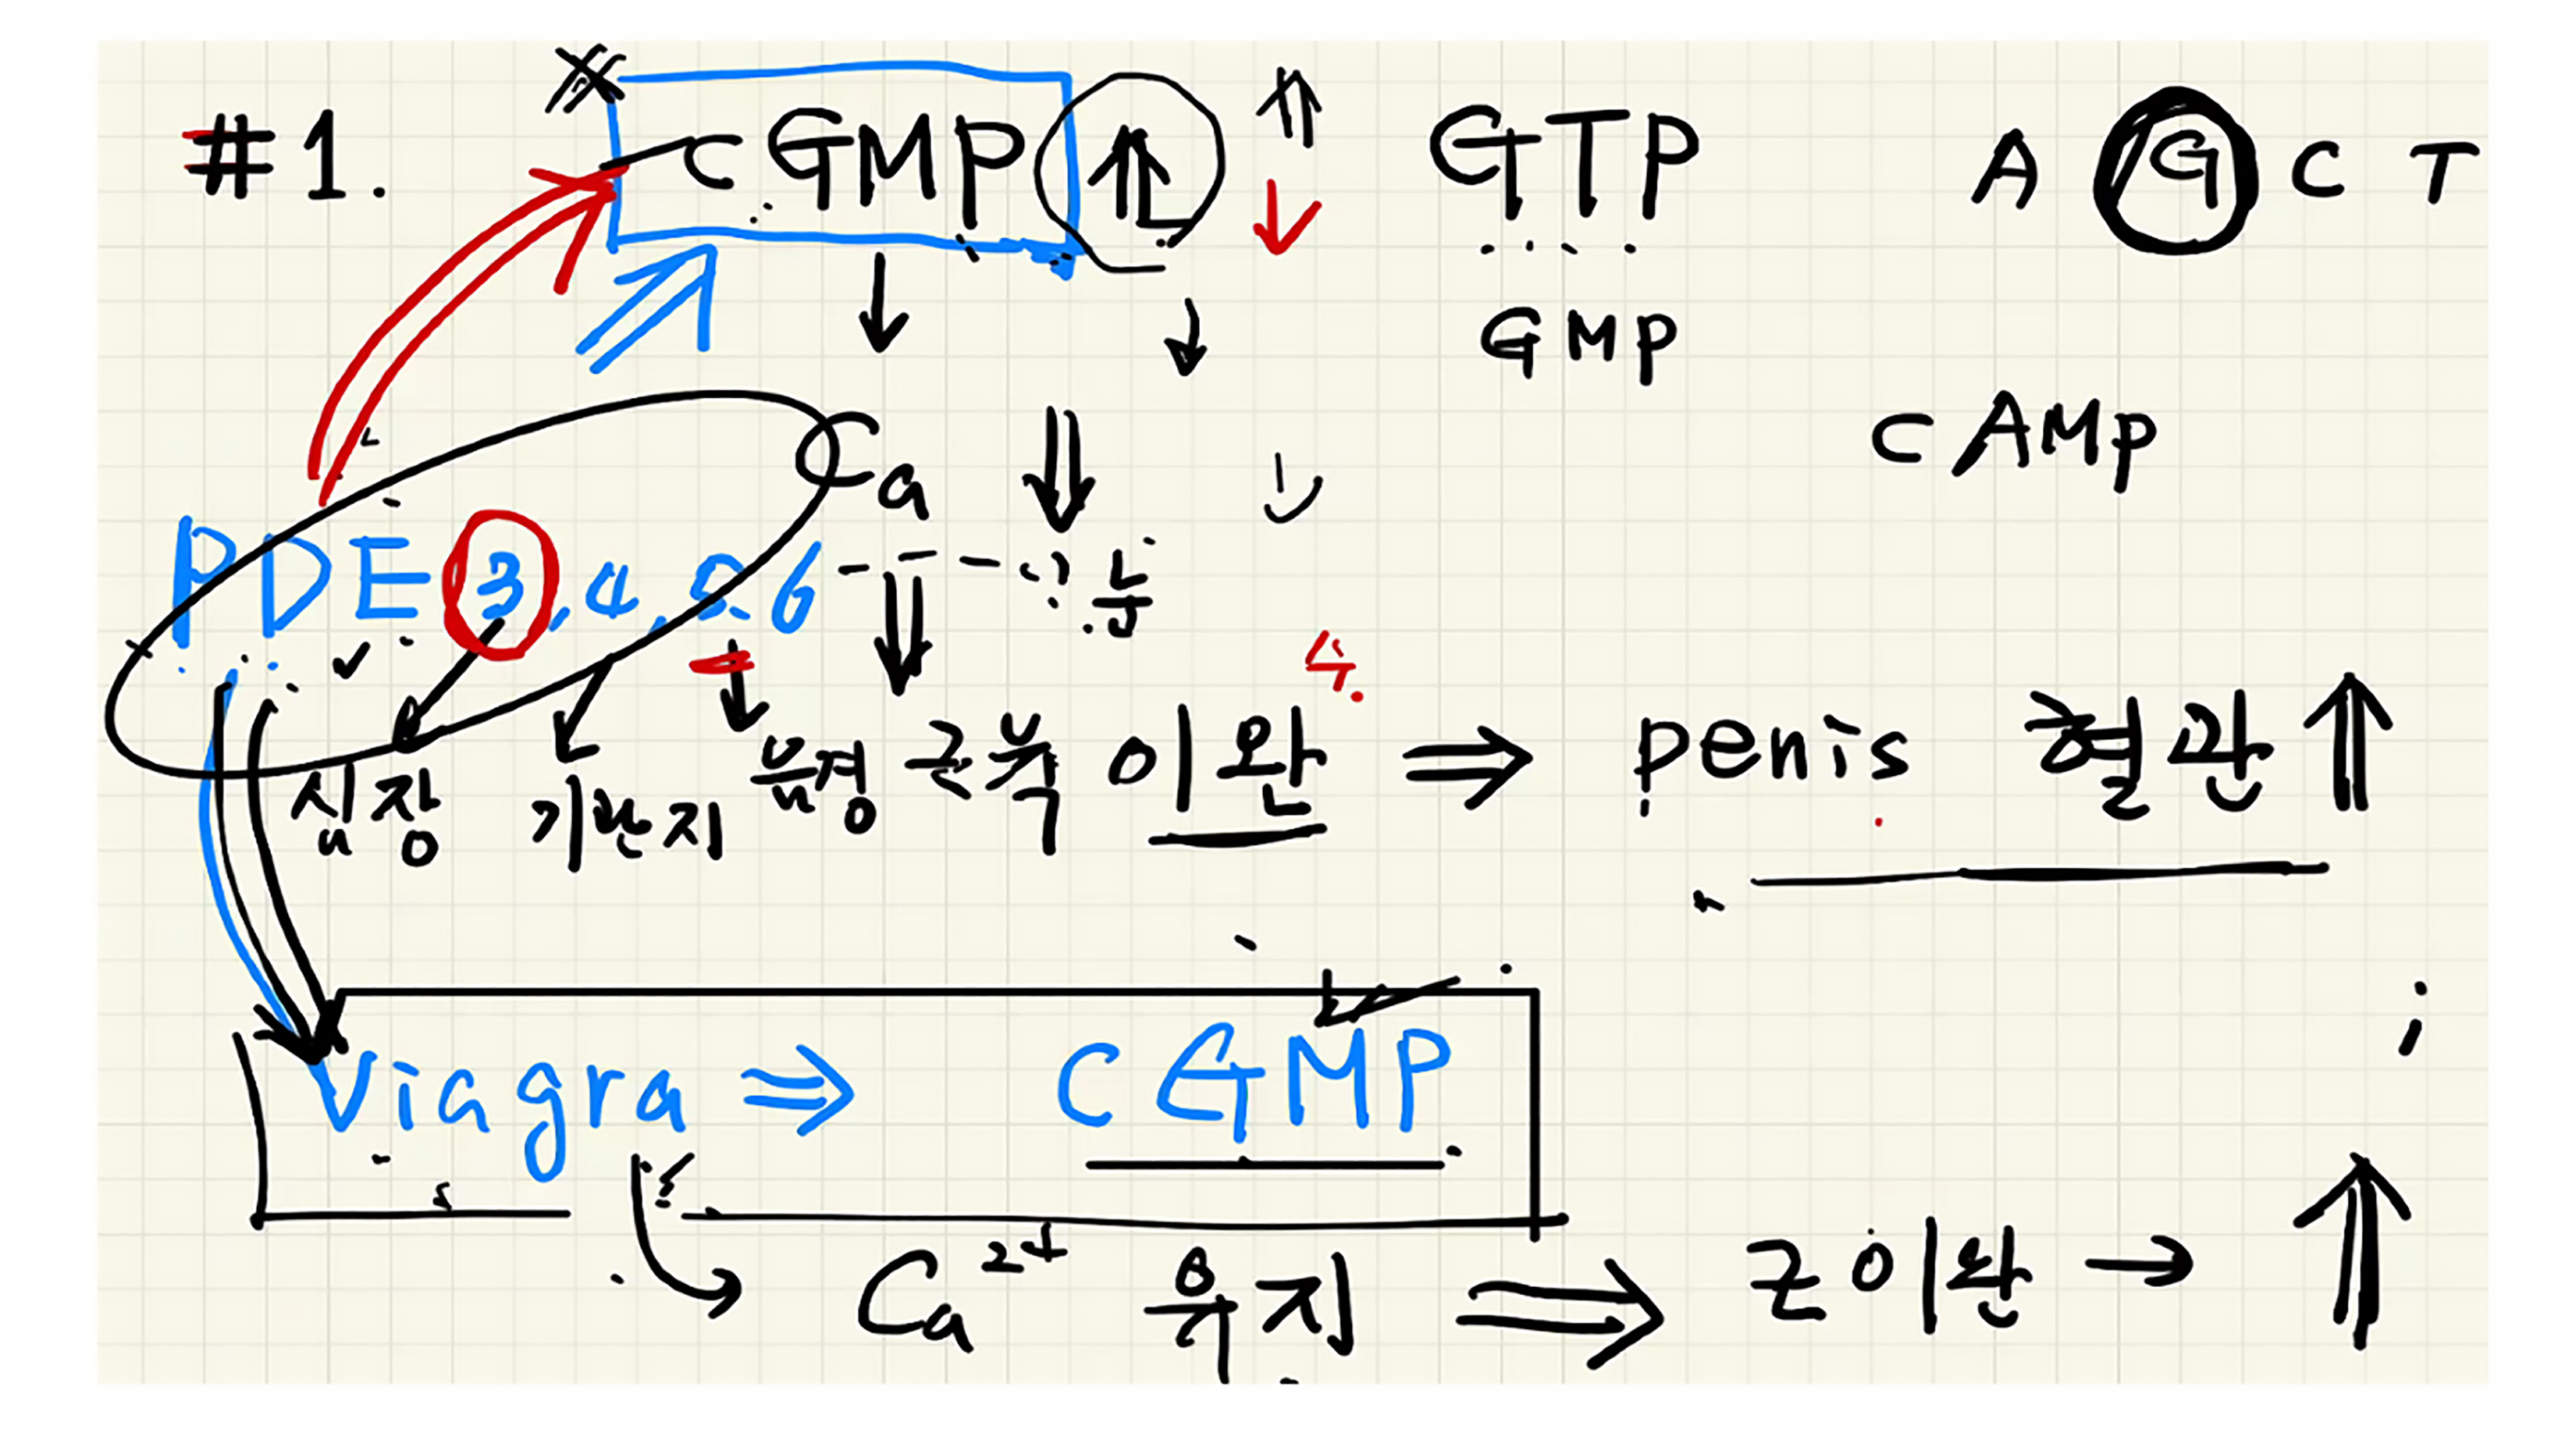 #1. cGMP GTP A G C T
GMP
cAMP
Ca
PDE 3, 4, 5, 6
4.
심장 기관지 음경 근육 이완 ⇒ penis 혈관 ↑
Viagra ⇒ cGMP
Ca2+ 유지 ⇒ 근이완 → ↑